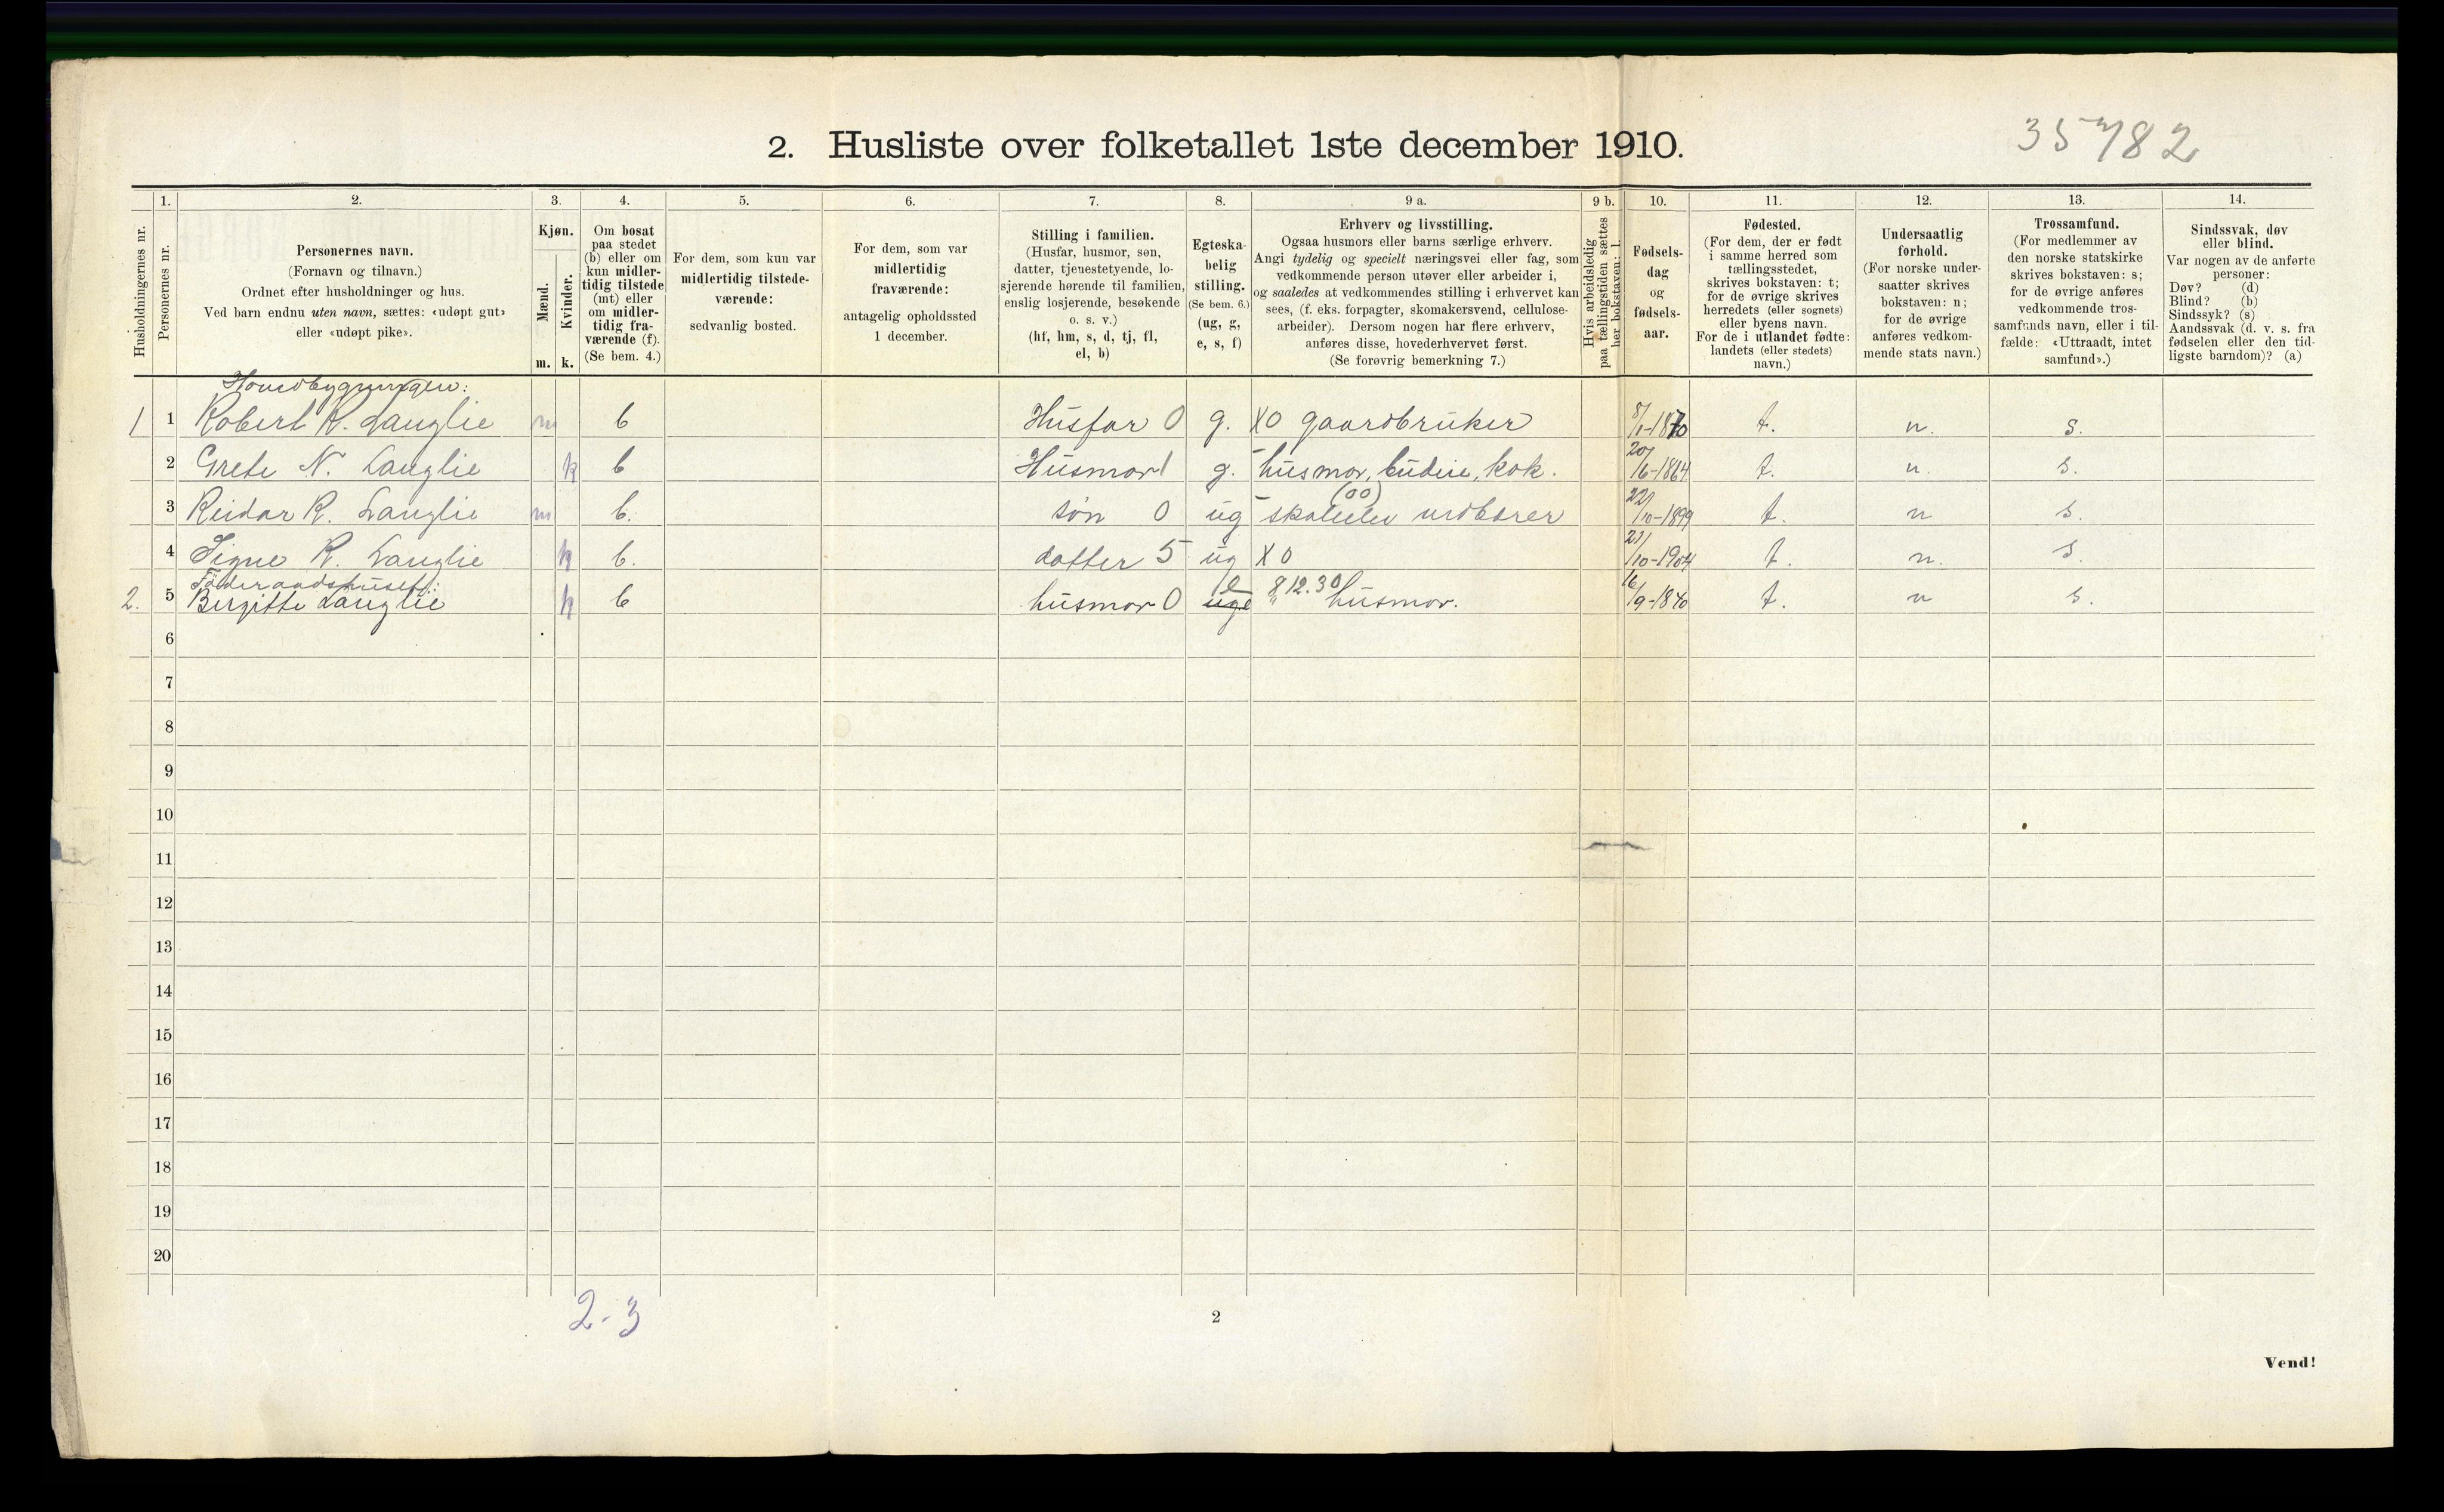 35782
2. Husliste over folketallet 1ste december 1910.
1. 2. 3. 4. 5. 6. 7. 8. 9 a. 9 b. 10. 11. 12. 13. 14.
Husholdningernes nr.
Personernes nr.
Personernes navn.
(Fornavn og tilnavn.)
Ordnet efter husholdninger og hus.
Ved barn endnu uten navn, sættes: «udøpt gut»
eller «udøpt pike».
Kjøn.
Mænd.
Kvinder.
m. k.
Om bosat
paa stedet
(b) eller om
kun midler-
tidig tilstede
(mt) eller
om midler-
tidig fra-
værende (f).
(Se bem. 4.)
For dem, som kun var
midlertidig tilstede-
værende:
sedvanlig bosted.
For dem, som var
midlertidig
fraværende:
antagelig opholdssted
1 december.
Stilling i familien.
(Husfar, husmor, søn,
datter, tjenestetyende, lo-
sjerende hørende til familien,
enslig losjerende, besøkende
o. s. v.)
(hf, hm, s, d, tj, fl,
el, b)
Egteska-
belig
stilling.
(Se bem. 6.)
(ug, g,
e, s, f)
Erhverv og livsstilling.
Ogsaa husmors eller barns særlige erhverv.
Angi tydelig og specielt næringsvei eller fag, som
vedkommende person utøver eller arbeider i,
og saaledes at vedkommendes stilling i erhvervet kan
sees, (f. eks. forpagter, skomakersvend, cellulose-
arbeider). Dersom nogen har flere erhverv,
anføres disse, hovederhvervet først.
(Se forøvrig bemerkning 7.)
Hvis arbeidsledig
paa tællingstiden sættes
her bokstaven: l.
Fødsels-
dag
og
fødsels-
aar.
Fødested.
(For dem, der er født
i samme herred som
tællingsstedet,
skrives bokstaven: t;
for de øvrige skrives
herredets (eller sognets)
eller byens navn.
For de i utlandet fødte:
landets (eller stedets)
navn.)
Undersaatlig
forhold.
(For norske under-
saatter skrives
bokstaven: n;
for de øvrige
anføres vedkom-
mende stats navn.)
Trossamfund.
(For medlemmer av
den norske statskirke
skrives bokstaven: s;
for de øvrige anføres
vedkommende tros-
samfunds navn, eller i til-
fælde: «Uttraadt, intet
samfund».)
Sindssvak, døv
eller blind.
Var nogen av de anførte
personer:
Døv? (d)
Blind? (b)
Sindssyk? (s)
Aandssvak (d. v. s. fra
fødselen eller den tid-
ligste barndom)? (a)
Hovedbygningen:
1 1 Robert R. Langlie m b Husfar 0 g. X0 gaardbruker 8/1-1870 t. n. s.
2 Grete N. Langlie k b Husmor 1 g. husmor, budeie, kok. 20/6-1864 t. n. s.
(00)
3 Reidar R. Langlie m b. søn 0 ug skoleelev 22/10-1899 t. n s.
4 Signe R. Langlie k b. datter 5 ug X0 21/10-1904 t. n. s.
Föderaadshuset:
2. 5 Birgitte Langlie k b husmor 0 e 812.30 husmor. 16/9-1840 t. n s.
6
7
8
9
10
11
12
13
14
15
16
17
18
19
20
2-3
2
Vend!